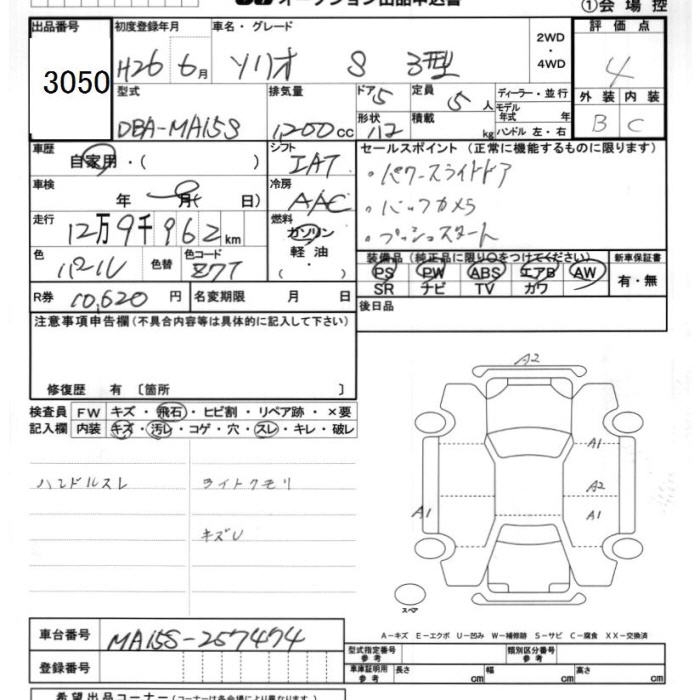 オークション出品申込書
①会場控
出品番号 初度登録年月 車名・グレード 2WD・4WD 評価点
3050 H26 6月 ソリオ S 3型 4
型式 排気量 ドア 5 定員 5人 ディーラー・並行 外装 内装
モデル年式 年
DBA-MA15S 1200cc 形状 積載 kg ハンドル 左・右 B C
車歴 シフト セールスポイント (正常に機能するものに限ります)
自家用・( ) IAT ・パワースライドドア
車検 年 月( 日) 冷房 AAC ・バックカメラ
走行 12万9千962km 燃料 ガソリン・軽油・( ) ・プッシュスタート
色 色替 色コード 装備品 (純正品に限り○をつけてください) 新車保証書
パール Z7T PS PW ABS エアB AW 有・無
SR ナビ TV カワ
R券 10,620円 名変期限 月 日 後日品
注意事項申告欄 (不具合内容等は具体的に記入して下さい)
修復歴 有 〔箇所 〕
検査員 FW キズ・飛石・ヒビ割・リペア跡・×要
記入欄 内装 キズ・汚レ・コゲ・穴・スレ・キレ・破レ
ハンドルスレ ライトクモリ
キズU
A2
A1
A2
A1 A1
スペア
A-キズ E-エクボ U-凹み W-補修跡 S-サビ C-腐食 XX-交換済
車台番号 MA15S-257474
型式指定番号 参考 類別区分番号 参考
登録番号 車庫証明用 参考 長さ cm 幅 cm 高さ cm
希望出品コーナー (コーナーは各会場により異なります。)